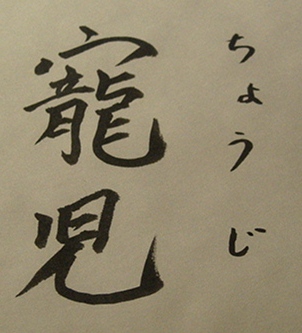 寵児
ちょうじ